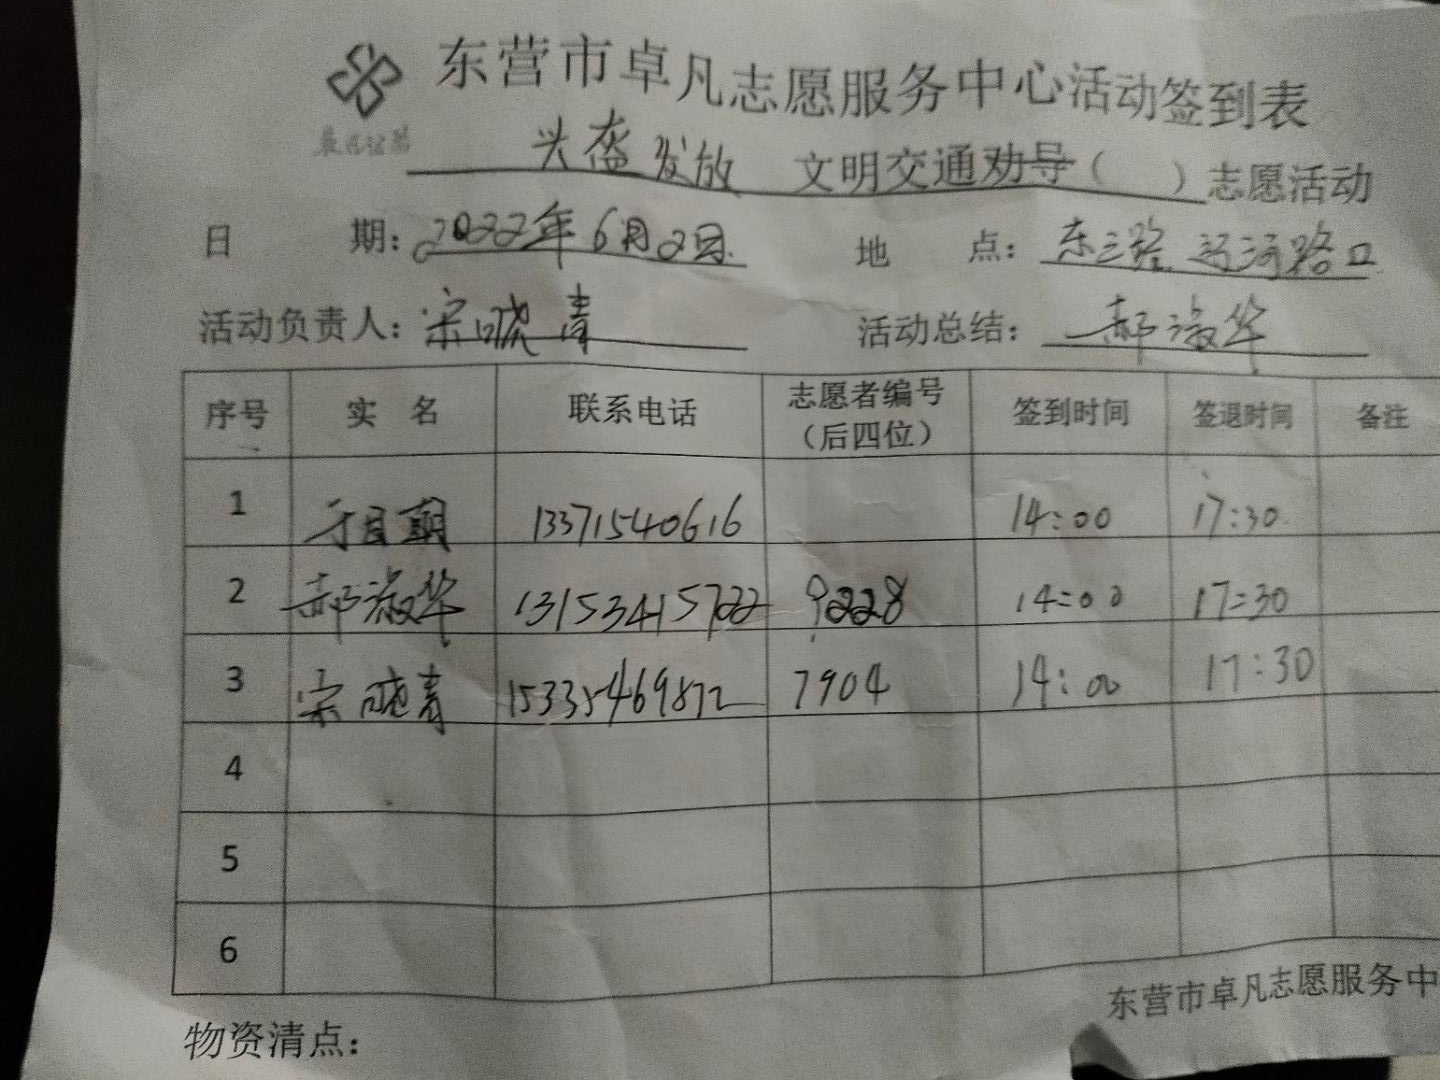 东营市卓凡志愿服务中心活动签到表
头盔发放 文明交通劝导（ ）志愿活动
日 期：2022年6月2日 地 点：东三路 路口
活动负责人：宋晓青 活动总结：郝淑华
序号 实 名 联系电话 志愿者编号（后四位） 签到时间 签退时间 备注
1 13371540616 14:00 17:30
2 郝淑华 13153415722 9228 14:00 17:30
3 宋晓青 15335469872 7904 14:00 17:30
4
5
6
东营市卓凡志愿服务中
物资清点：